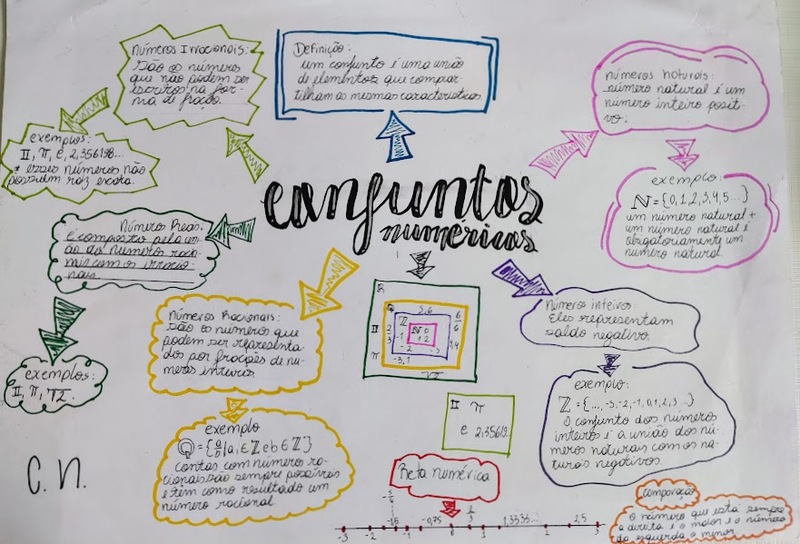 conjuntos
numéricos
Definição:
um conjunto é uma união
de elementos que compar-
tilham as mesmas características
números Irracionais:
São os números
que não podem ser
escritos na for-
ma de fração.
exemplos:
π, e, 2,356198...
* esses números não
possuem raiz exata.
números Naturais:
número natural é um
número inteiro positi-
vo.
exemplo:
N = {0,1,2,3,4,5...}
um número natural +
um número natural é
obrigatoriamente um
número natural
Números Reais:
é composto pela uni-
ão dos números racio-
nais com os irracio-
nais
exemplos:
II, π, √2.
Números Racionais:
são os números que
podem ser representa-
dos por frações de nú-
meros inteiros.
exemplo
Q = {a/b | a, ∈ Z e b ∈ Z*}
contas com números ra-
cionais são sempre possíveis
e têm como resultado um
número racional
números inteiros:
Eles representam
saldo negativo.
exemplo:
Z = {..., -3, -2, -1, 0, 1, 2, 3 ...}
O conjunto dos números
inteiros é a união dos nú-
meros naturais com os na-
turais negativos.
R
Q
5,6
Z
N 0
1 2
-1
-2
-3
-3,1
II
π
√2
II π
e 2,35619...
Reta numérica
-1,5 -0,75 1,3333... 2,5
-3 -2 -1 0 1 2 3
comparação
O número que está sempre
a direita é o maior e o número
da esquerda o menor
C.N.